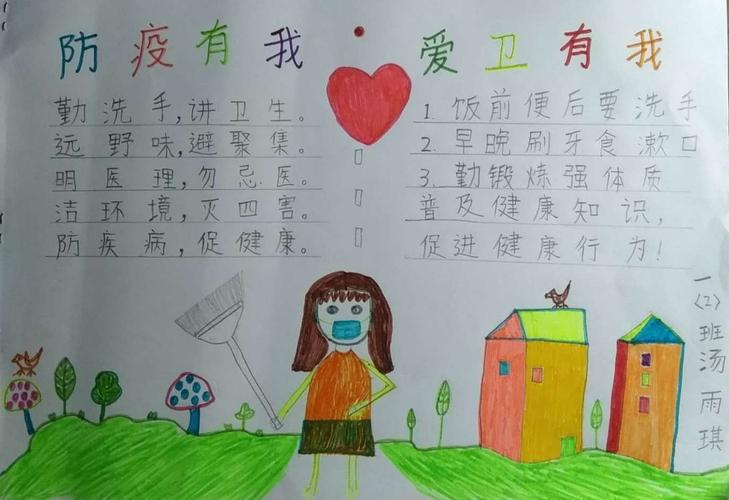 防疫有我·爱卫有我
勤洗手,讲卫生。
远野味,避聚集。
明医理,勿忌医。
洁环境,灭四害。
防疾病,促健康。
1. 饭前便后要洗手
2. 早晚刷牙食漱口
3. 勤锻炼强体质
普及健康知识,
促进健康行为!
一〈2〉班汤雨琪